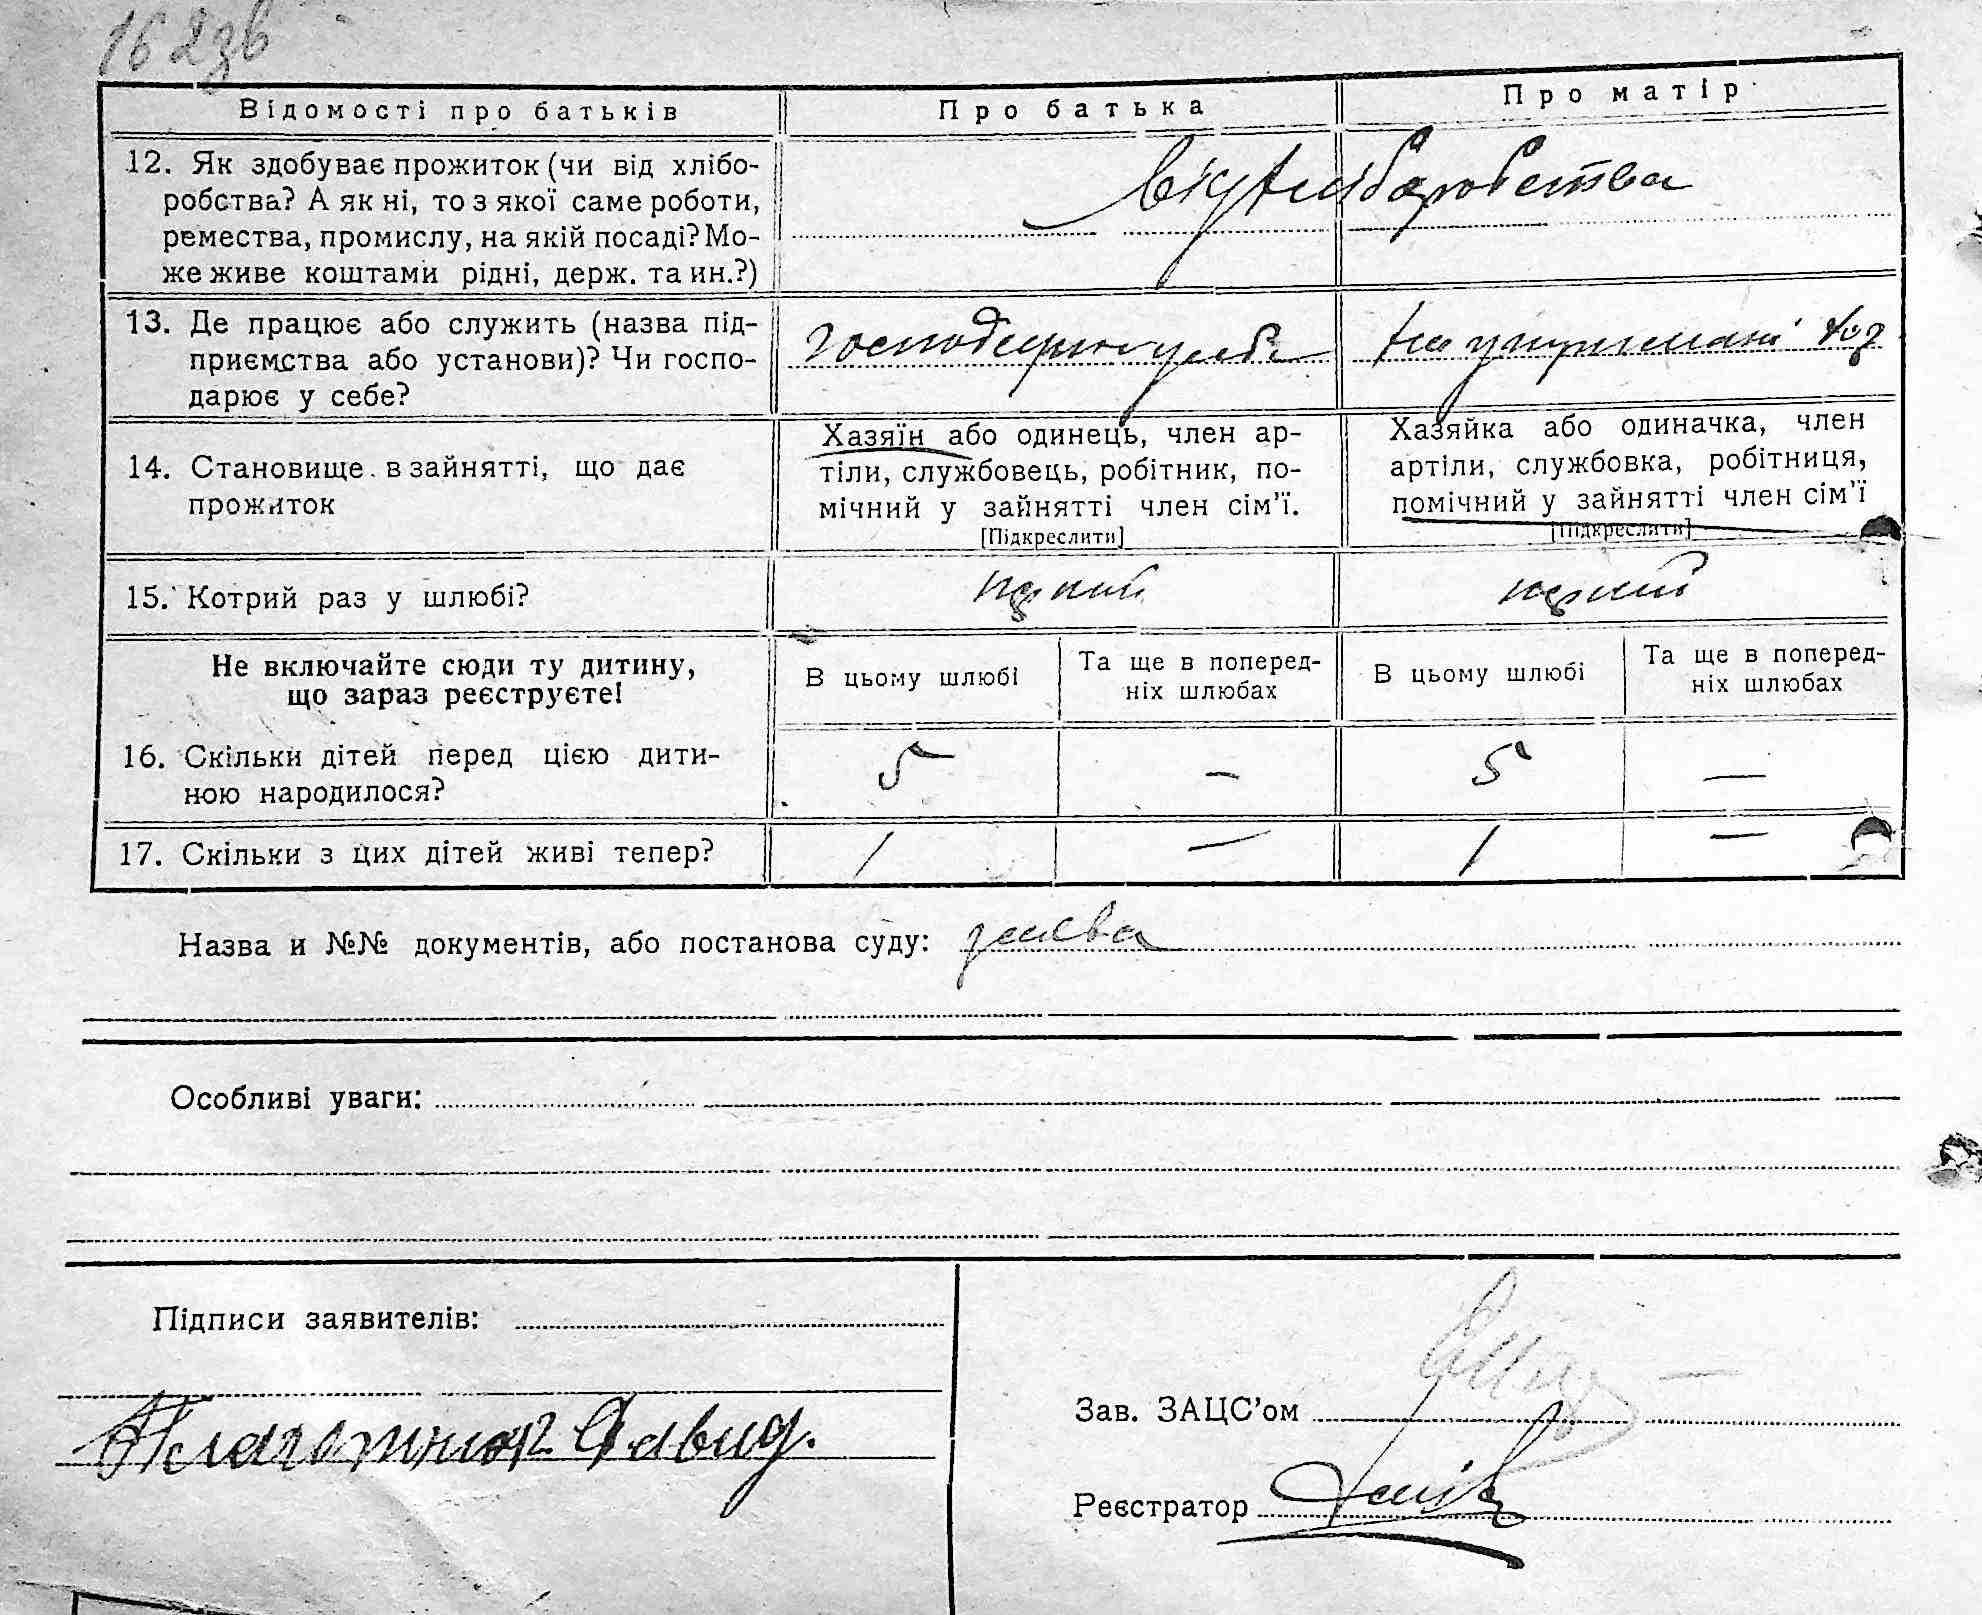 162зв
Відомості про батьків
Про батька
Про матір
12. Як здобуває прожиток (чи від хлібо-
робства? А як ні, то з якої саме роботи,
ремества, промислу, на якій посаді? Мо-
же живе коштами рідні, держ. та ин.?)
від хліборобства
13. Де працює або служить (назва під-
приємства або установи)? Чи госпо-
дарює у себе?
господарює у себе
на утриманні
14. Становище в зайнятті, що дає
прожиток
Хазяїн або одинець, член ар-
тіли, службовець, робітник, по-
мічний у зайнятті член сім'ї.
[Підкреслити]
Хазяйка або одиначка, член
артіли, службовка, робітниця,
помічний у зайнятті член сім'ї
[Підкреслити]
15. Котрий раз у шлюбі?
перший
перший
Не включайте сюди ту дитину,
що зараз реєструєте!
В цьому шлюбі
Та ще в поперед-
ніх шлюбах
В цьому шлюбі
Та ще в поперед-
ніх шлюбах
16. Скільки дітей перед цією дити-
ною народилося?
5 — 5 —
17. Скільки з цих дітей живі тепер?
1 — 1 —
Назва и №№ документів, або постанова суду: заява
Особливі уваги:
Підписи заявителів:
Давид.
Зав. ЗАЦС'ом
Реєстратор